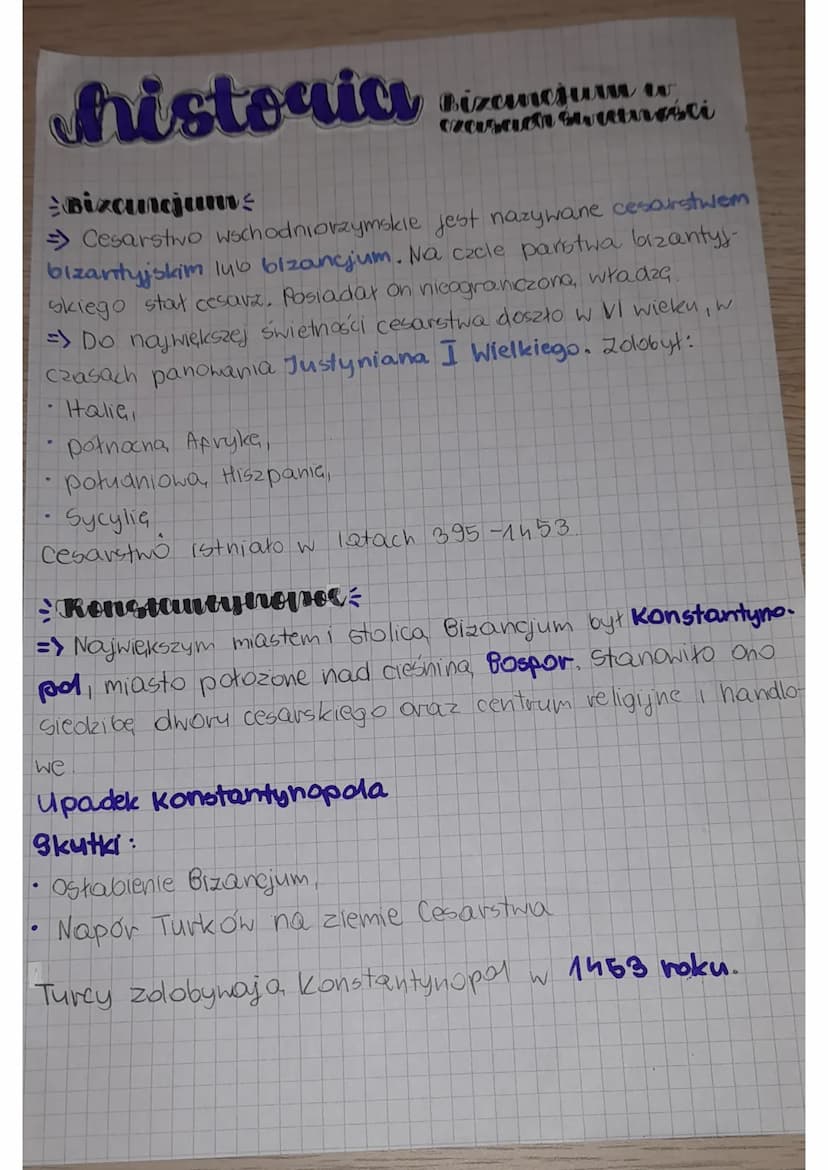 historia
Bizancjum w
czasach świetności
Bizancjum
=> Cesarstwo wschodniorzymskie jest nazywane cesarstwem
bizantyjskim lub bizancjum. Na czele państwa bizantyj-
skiego stał cesarz. Posiadał on nieograniczoną władzę.
=> Do największej świetności cesarstwa doszło w VI wieku, w
czasach panowania Justyniana I Wielkiego. Zdobył:
• Italię,
• północną Afrykę,
• południową Hiszpanię,
• Sycylię.
Cesarstwo istniało w latach 395-1453.
Konstantynopol
=> Największym miastem i stolicą Bizancjum był Konstantyno-
pol, miasto położone nad cieśniną Bospor. Stanowiło ono
siedzibę dworu cesarskiego oraz centrum religijne i handlo-
we.
Upadek Konstantynopola
Skutki:
• Osłabienie Bizancjum,
• Napór Turków na ziemie Cesarstwa
Turcy zdobywają Konstantynopol w 1453 roku.